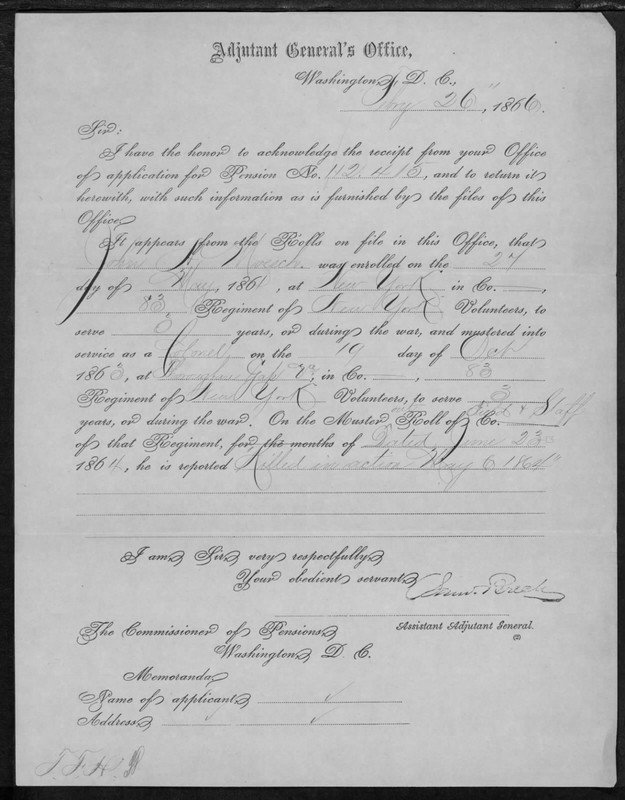 Adjutant General's Office,
Washington, D. C.,
Feby 26", 1866.
Sir:
I have the honor to acknowledge the receipt from your Office
of application for Pension No. 112.415, and to return it
herewith, with such information as is furnished by the files of this
Office.
It appears from the Rolls on file in this Office, that
was enrolled on the 27
day of May, 1861, at New York in Co.
83 Regiment of New York Volunteers, to
serve 3 years, or during the war, and mustered into
service as a Colonel on the 19 day of Oct
1863, at Thoroughfare Gap Va. in Co. 83
Regiment of New York Volunteers, to serve 3
years, or during the war. On the Muster out Roll of Co. Field & Staff
of that Regiment, for the months of Dated June 23
1864, he is reported Killed in action May 6 1864"
I am, Sir, very respectfully,
Your obedient servant,
Saml. Breck
Assistant Adjutant General.
The Commissioner of Pensions,
Washington, D. C.
Memoranda
Name of applicant,
Address,